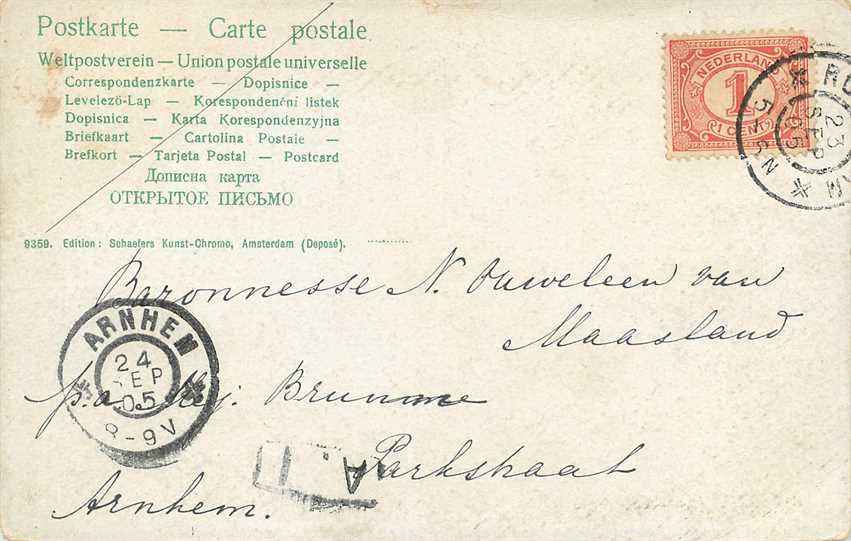 Postkarte — Carte postale
Weltpostverein — Union postale universelle
Correspondenzkarte — Dopisnice —
Levelező-Lap — Korespondenční listek
Dopisnica — Karta Korespondenzyjna
Briefkaart — Cartolina Postale —
Brefkort — Tarjeta Postal — Postcard
Дописна карта
ОТКРЫТОЕ ПИСЬМО
9359. Edition: Schaefers Kunst-Chromo, Amsterdam (Deposé).
NEDERLAND
1
(1 CENT)
23
SEP
05
5-6N
Baronnesse N. Ouweleen van
Maasland
p.a. Mej: Brumme
Parkstraat
Arnhem.
ARNHEM
24
SEP
05
8-9V